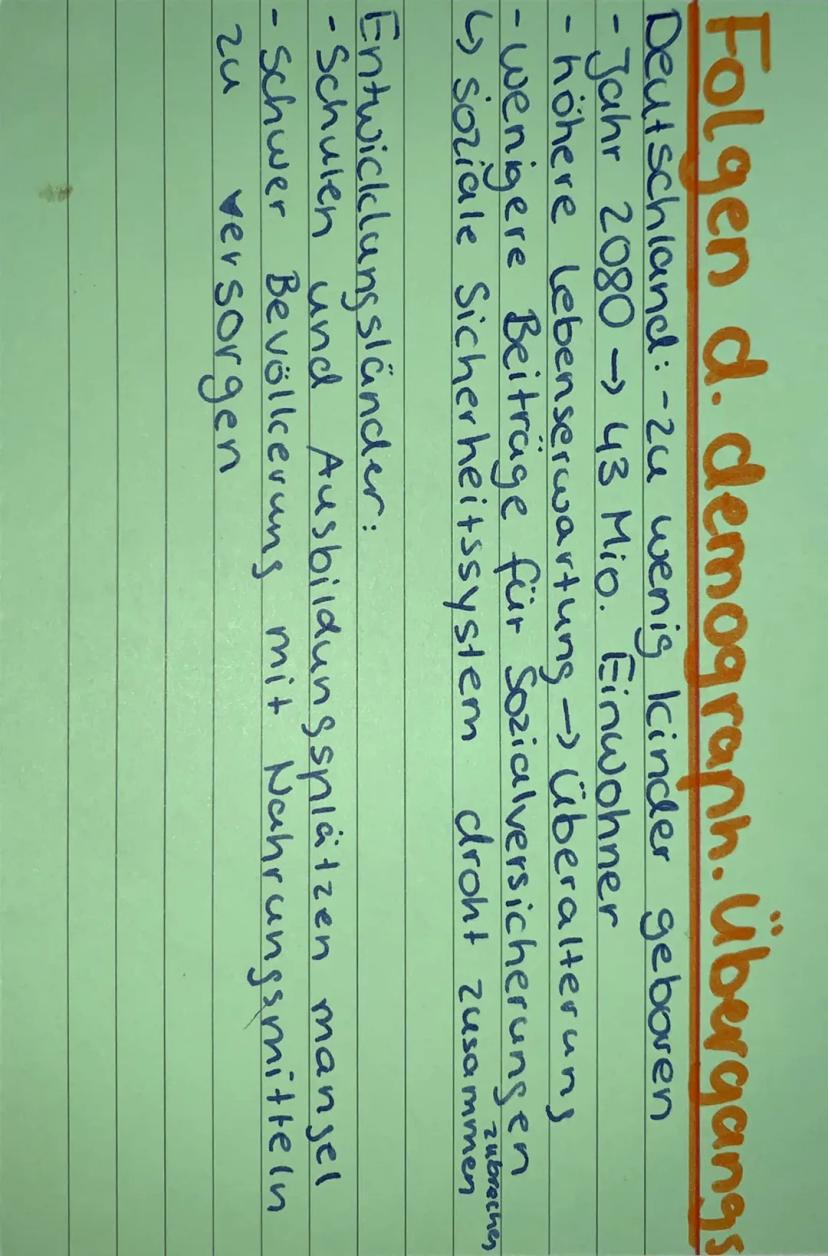 Folgen d. demograph. Übergangs
Deutschland: - zu wenig kinder geboren
- Jahr 2080 → 43 Mio. Einwohner
- höhere Lebenserwartung → Überalterung
- wenigere Beiträge für Sozialversicherungen
↳ soziale Sicherheitssystem droht zusammen zubrechen
Entwicklungsländer:
- Schulen und Ausbildungsplätzen mangel
- Schwer Bevölkerung mit Nahrungsmitteln
zu versorgen